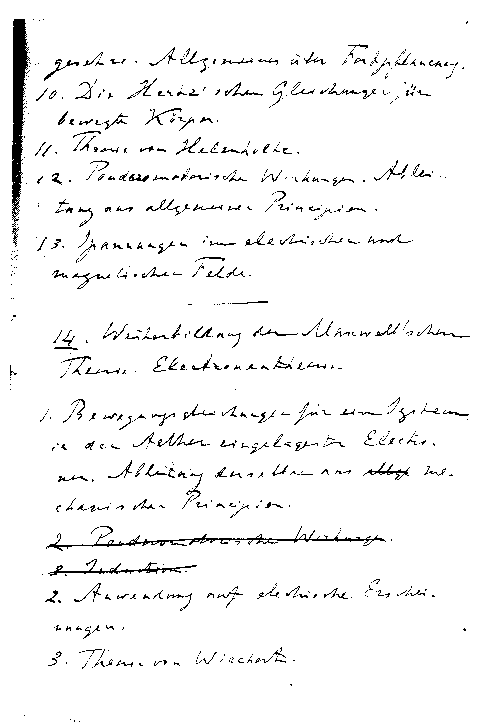 gesetze. Allgemeines über Fortpflanzung.
10. Die Herz'schen Gleichungen für
bewegte Körper.
11. Theorie von Helmholtz.
12. Ponderomotorische Wirkungen. Ablei-
tung aus allgemeinen Principien.
13. Spannungen im electrischen und
magnetischen Felde.
14. Weiterbildung der Maxwell'schen
Theorie. Electronentheorie.
1. Bewegungsgleichungen für ein System
in den Aether eingelagerter Electro-
nen. Ableitung derselben aus allg. me-
chanischen Principien.
2. Ponderomotorische Wirkungen.
3. Induction.
2. Anwendung auf electrische Erschei-
nungen.
3. Theorie von Wiechert.